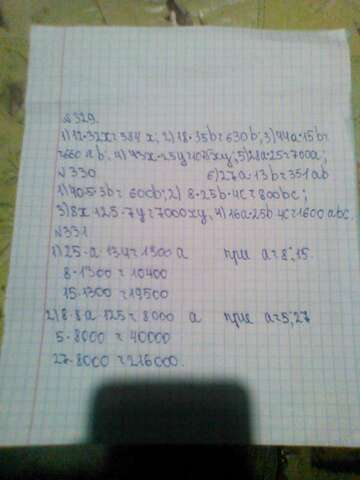 №329.
1) 12·32x=384x; 2) 18·35b=630b; 3) 44a·15b=
=660ab; 4) 43x·25y=1075xy; 5) 28a·25=700a;
№330 6) 27a·13b=351ab
1) 40·5·3b=600b; 2) 8·25b·4c=800bc;
3) 8x·125·7y=7000xy; 4) 16a·25b·4c=1600abc
№331
1) 25·a·13·4=1300a при a=8;15.
8·1300=10400
15·1300=19500
2) 8·8a·125=8000 a при a=5;27
5·8000=40000
27·8000=216000.